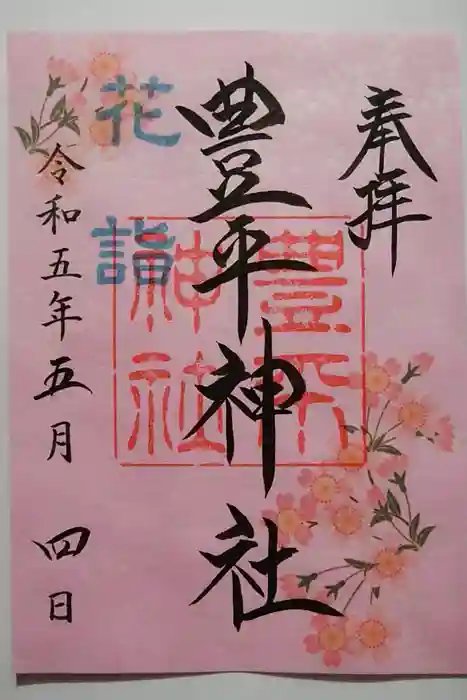 奉拝
豊平神社
豊平
神社
花詣
令和五年五月四日